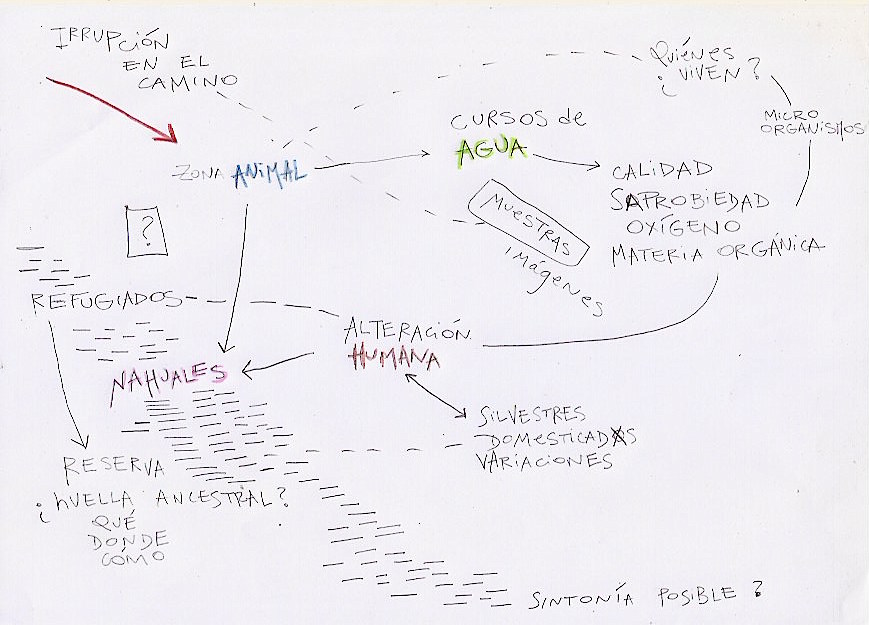 IRRUPCIÓN
EN EL
CAMINO
¿QUIÉNES
VIVEN?
MICRO
ORGANISMOS
CURSOS de
AGUA
ZONA ANIMAL
CALIDAD
SAPROBIEDAD
OXÍGENO
MATERIA ORGÁNICA
MUESTRAS
imágenes
?
REFUGIADOS
ALTERACIÓN
HUMANA
NAHUALES
SILVESTRES
DOMESTICADXS
VARIACIONES
RESERVA
¿hUELLA ANCESTRAL?
QUÉ
DONDE
CÓMO
SINTONÍA POSIBLE?